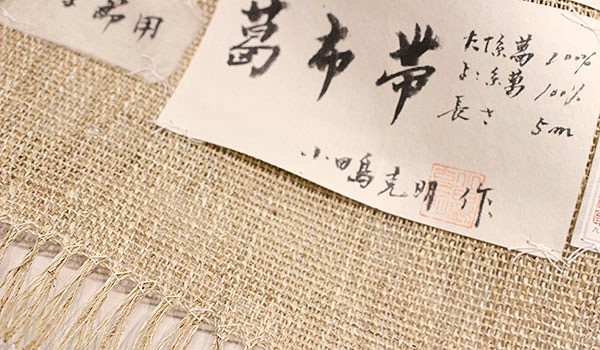 節用
葛布帯
たて糸葛 100%
よこ糸葛 100%
長さ 5m
克明 作